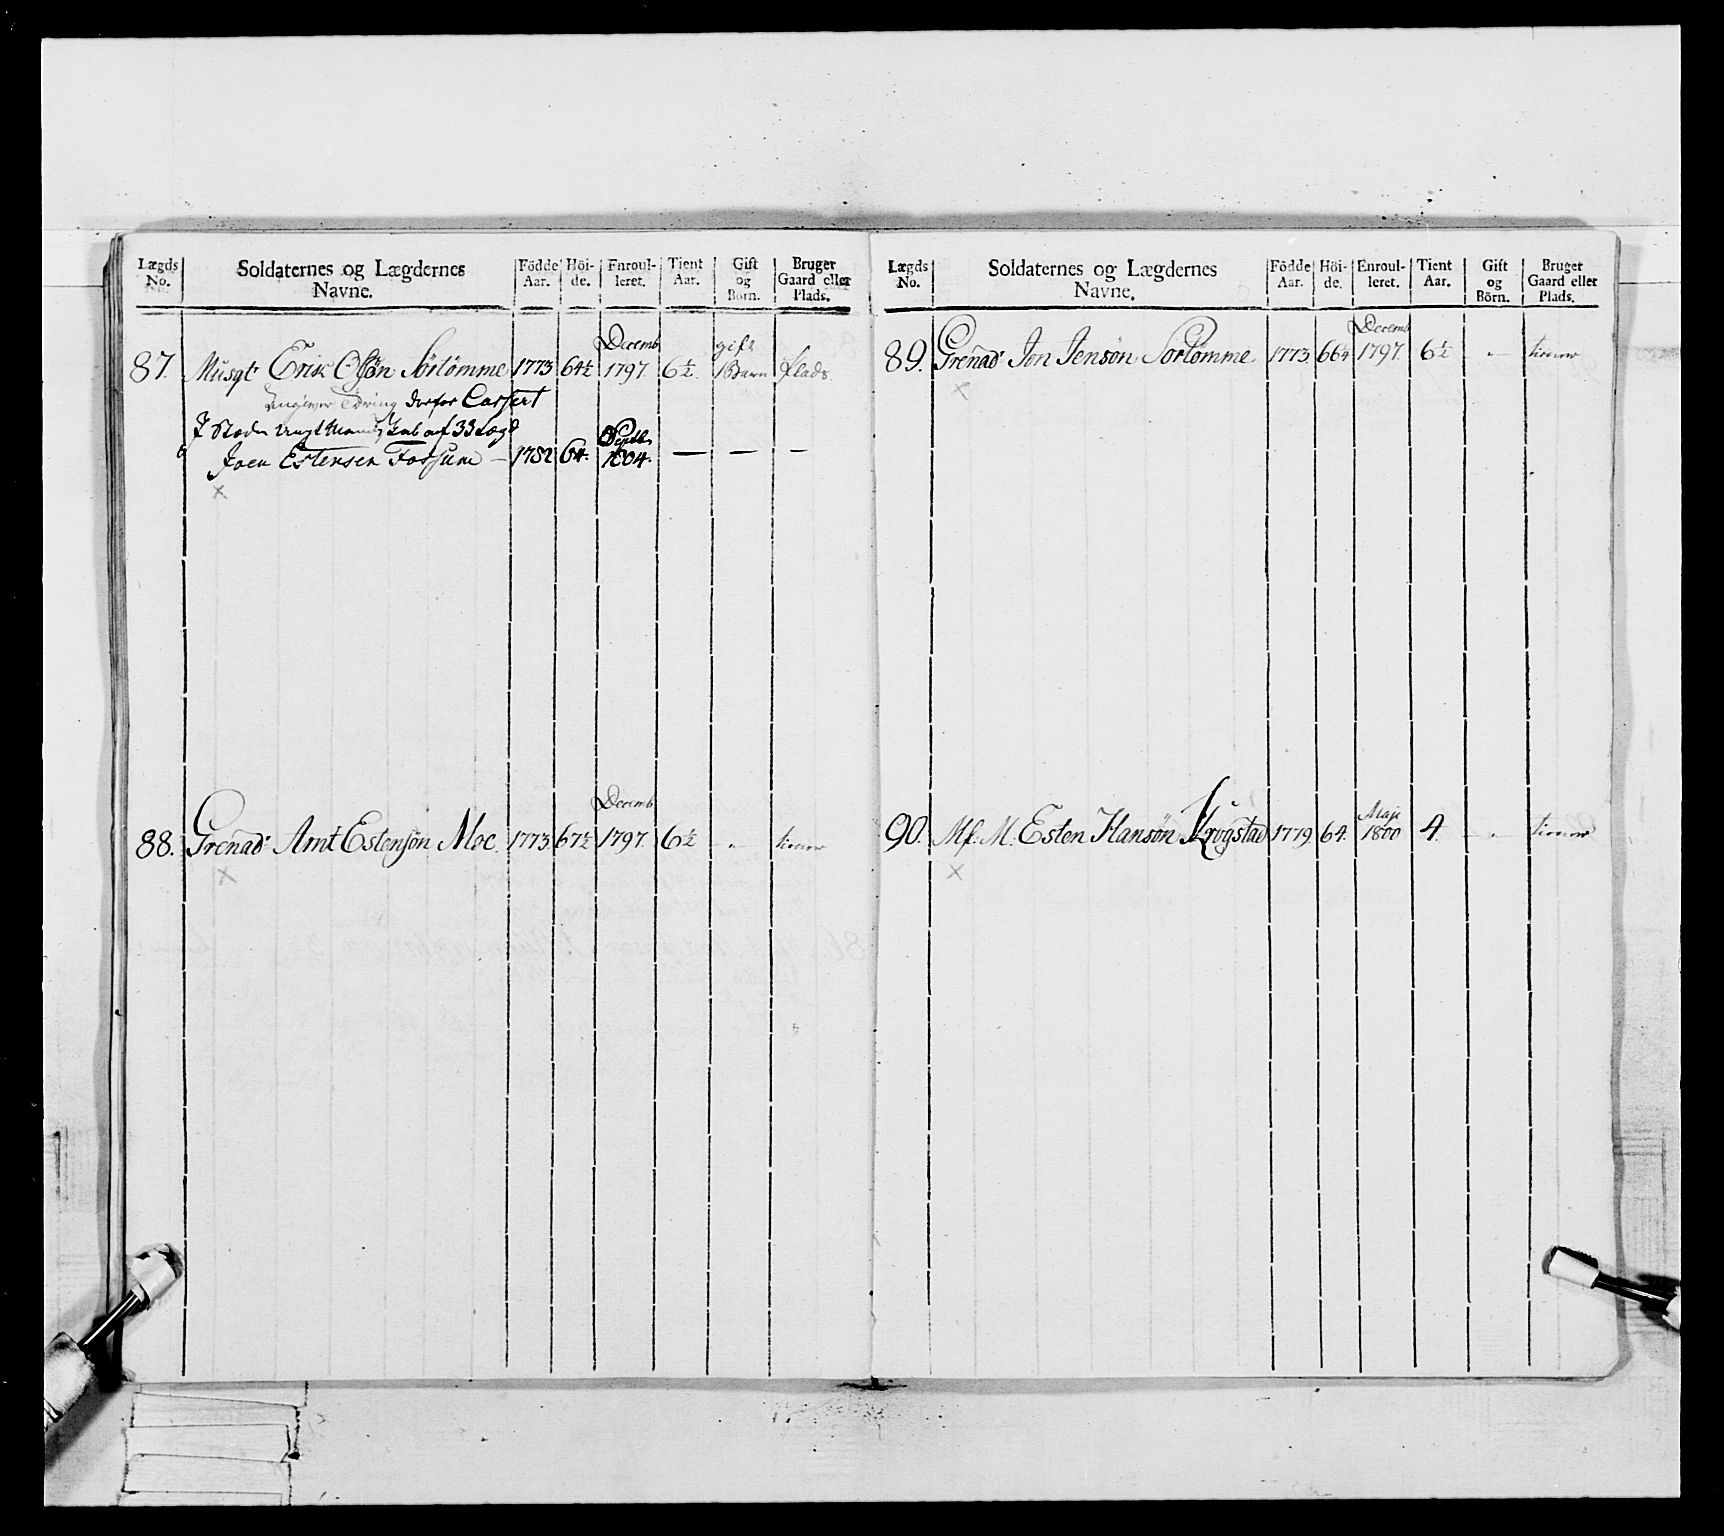 Lægds No. | Soldaternes og Lægdernes Navne. | Födde Aar. | Höi-de. | Enroul-leret. | Tient Aar. | Gift og Börn. | Bruger Gaard eller Plads.
87. Musqt Erik Olsøn Sørlømme 1773 64½ Decemb 1797. 6½. gift 1 Barn Plads.
angiver Tæring derfor Casser't
I Steden ungt Mandskab af 33 Lægd
Joen Estensen Fossum — 1782 64. Septbr 1804. — — —
×
88. Grenad: Arnt Estensøn Moe. 1773 67½ Decemb 1797. 6½ - " - tiener
×
Lægds No. | Soldaternes og Lægdernes Navne. | Födde Aar. | Höi-de. | Enroul-leret. | Tient Aar. | Gift og Börn. | Bruger Gaard eller Plads.
89. Grenad: Jon Jensøn Sørlømme 1773 66¼ Decemb 1797. 6½ - " - tiener
×
90. Mf: M: Esten Hansøn Krogstad 1779. 64. Maji 1800 4. - " - tiener
×